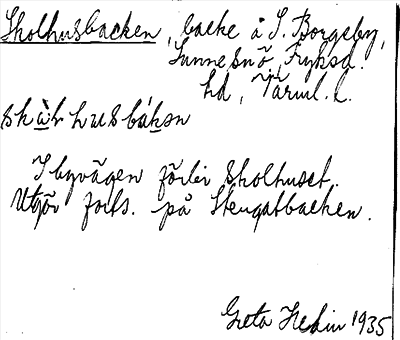 Skolhusbacken, backe å S. Borgeby,
Sunne sn ö, Fryksd.
hd, Värml. l.
skὼlhusbákən
I byvägen förbi skolhuset.
Utgör forts. på Stengatbacken.
Greta Hedin 1935